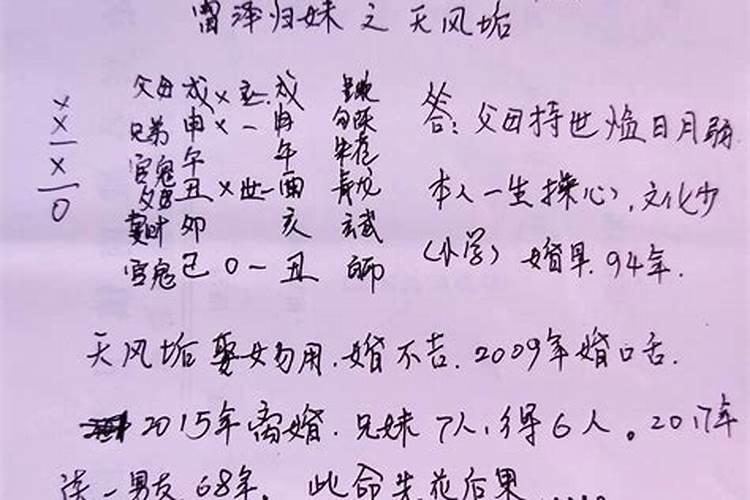 雷泽归妹之天风垢
父母戌×应戌
兄弟申×一申
官鬼午 午 朱雀
父母丑×世一酉 青龙
妻财卯 亥 玄武
官鬼巳0一丑
×
×
一
×
一
0
答:父母持世临日月弱
本人一生操心,文化少
(小学)婚早.94年.
天风垢娶女勿用.婚不吉.2009年婚口舌.
2015年离婚.兄妹7人,得6人。2017年
谈一男友68年.此命先花后果....